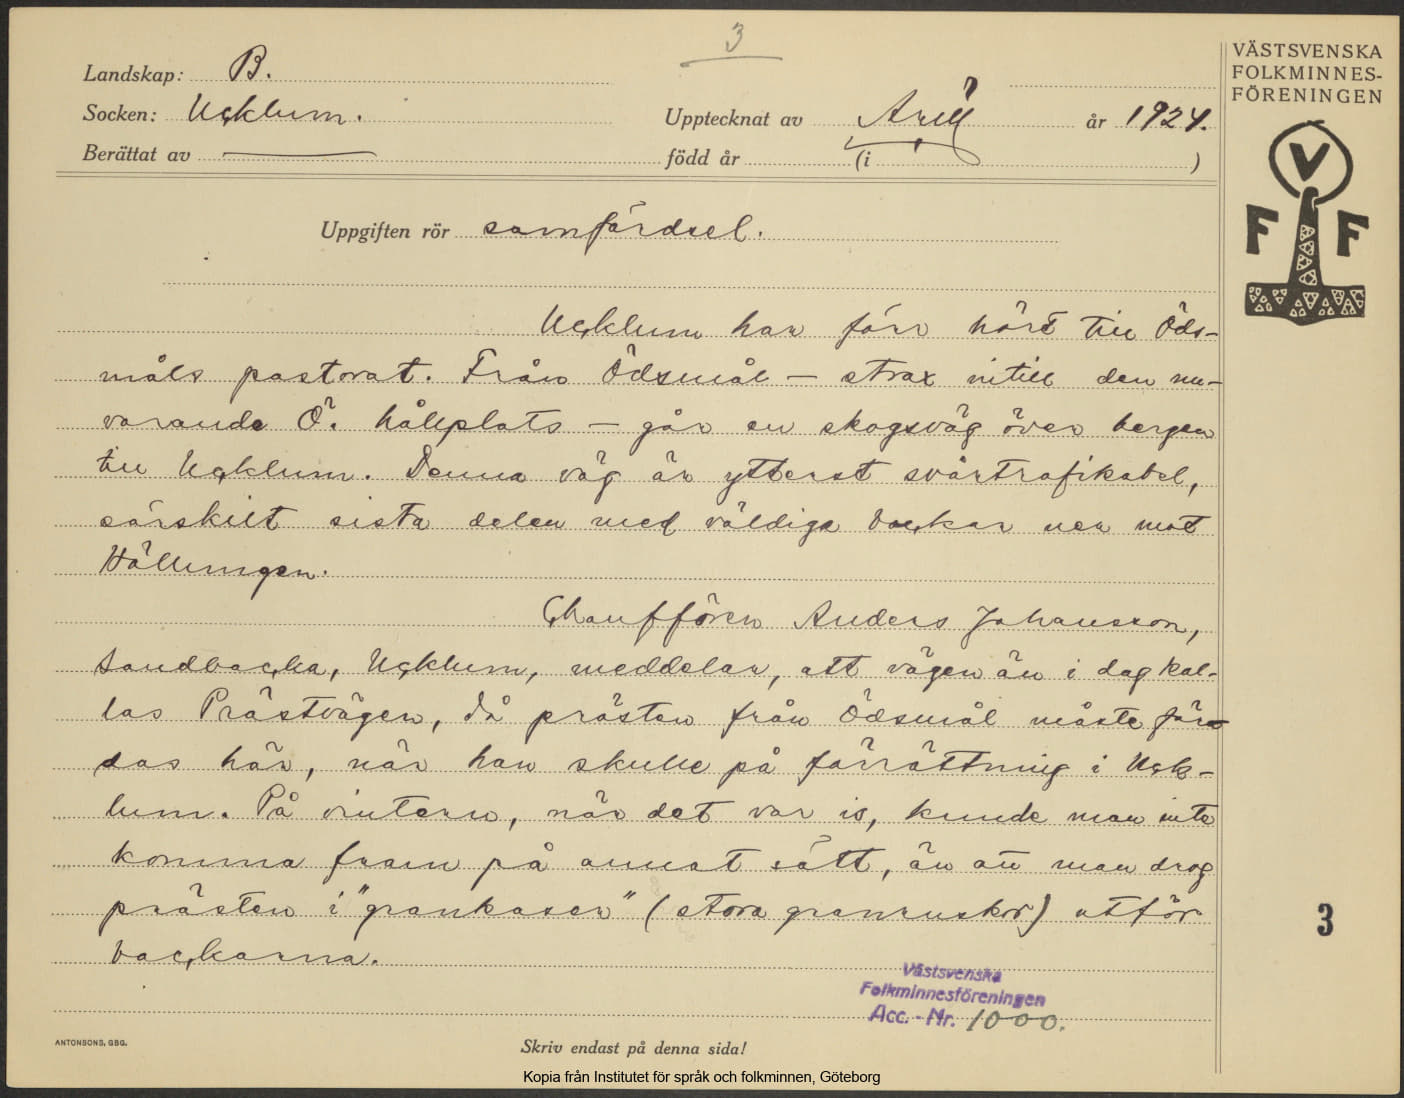 3
Landskap: B.
Socken: Ucklum.
Berättat av
Upptecknat av Arill år 1924.
född år (i )
VÄSTSVENSKA
FOLKMINNES-
FÖRENINGEN
V
F F
Uppgiften rör samfärdsel.
Ucklum har förr hört till Öds-
måls pastorat. Från Ödsmål — strax intill den nu-
varande Ö. hållplats — går en skogsväg över bergen
till Ucklum. Denna väg är ytterst svårtrafikabel,
särskilt sista delen med väldiga backar ner mot
Hällungen.
Chauffören Anders Johansson,
Sandbacka, Ucklum, meddelar, att vägen än i dag kal-
las Prästvägen, då prästen från Ödsmål måste fär-
das här, när han skulle på förrättning i Uck-
lum. På vintern, när det var is, kunde man inte
komma fram på annat sätt, än att man drog
prästen i "grankasen" (stora granruskor) utför
backarna.
3
Västsvenska
Folkminnesföreningen
Acc. - Nr. 1000.
ANTONSONS, GBG.
Skriv endast på denna sida!
Kopia från Institutet för språk och folkminnen, Göteborg